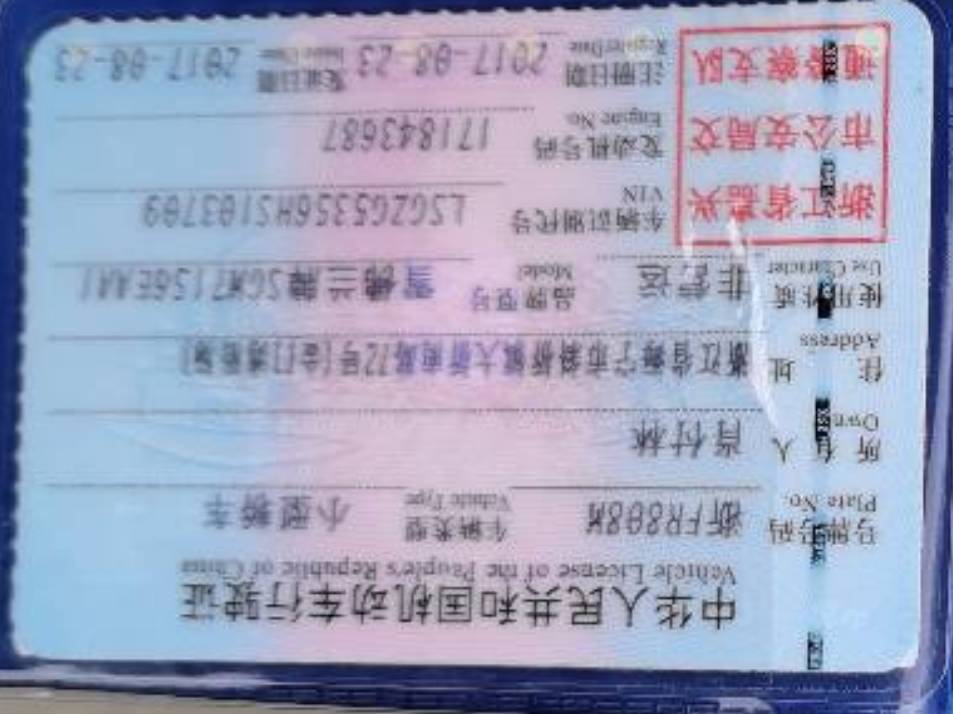 中华人民共和国机动车行驶证
Vehicle License of the People's Republic of China
号牌号码 浙FR808M 车辆类型 小型轿车
Plate No. Vehicle Type
所有人 肖付林
Owner
住址 浙江省海宁市斜桥镇
Address
使用性质 非营运 品牌型号 雪佛兰牌SGM7156EAA1
Use Character Model
浙江省嘉兴
市公安局交
通警察支队
车辆识别代号 LSGZG5356HS103709
VIN
发动机号码 171843687
Engine No.
注册日期 2017-08-23 发证日期 2017-08-23
Register Date Issue Date